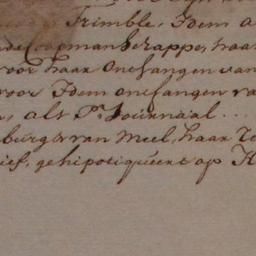 Trimble, Idem a
Coopman Scrappe, haar
voor haar ontfangen van
voor Idem ontfangen va
, als P.r Journaal ...
burger van Meel, haar Te
ief, gehipotiqueert op H